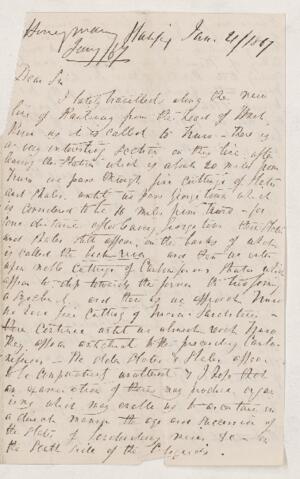 Honeyman Halifax Jan. 21/1867
Jany /67
Dear Sir
I lately travelled along the new
line of Railway from the head of
as it is called to Truro - there is
a very interesting section on this line after
leaving the Station which is about 20 miles from
Truro we pass through fine cuttings of Slates
and Shales, until we pass Georgetown which
is considered to be 16 miles from Truro - for
some distance after leaving Georgetown these Slates
and Shales still appear, on the banks of what
is called the river and then we enter
upon cuttings of Carboniferous Strata which
appear to dip towards the former
and then as we approach Truro
we have fine cutting of Triassic Sandstone -
these continue until we almost reach Truro
They appear to the preceding Carbo-
niferous - The older Slates & Shales appear
to be unaltered & I hope that
an examination of them may produce organ
isms which may enable us to ascertain in
a direct manner the age and succession of
the Slates of &c - on
the South side of the